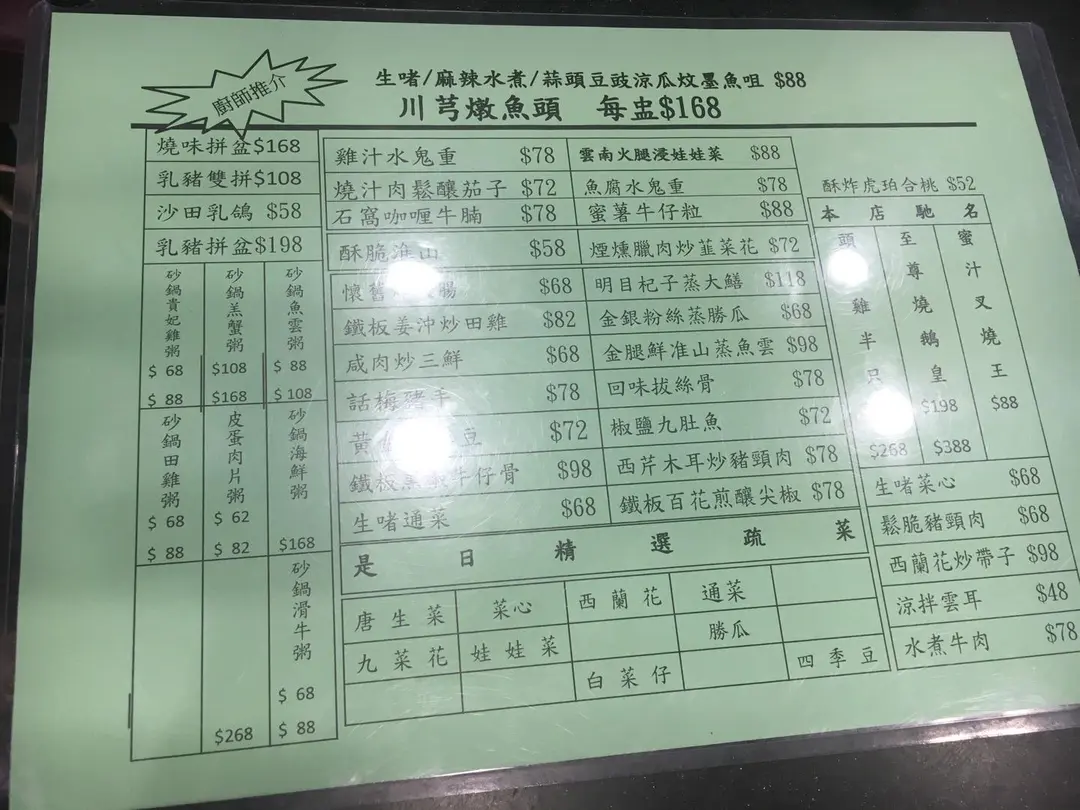 廚師推介
生啫/麻辣水煮/蒜頭豆豉涼瓜炆墨魚咀 $88
川芎燉魚頭 每盅$168
燒味拼盆$168
乳豬雙拼$108
沙田乳鴿 $58
乳豬拼盆$198
砂鍋貴妃雞粥 $ 68 $ 88
砂鍋羔蟹粥 $108 $168
砂鍋魚雲粥 $ 88 $ 108
砂鍋田雞粥 $ 68 $ 88
皮蛋肉片粥 $ 62 $ 82
砂鍋海鮮粥 $168
$268
砂鍋滑牛粥 $ 68 $ 88
雞汁水鬼重 $78
雲南火腿浸娃娃菜 $88
燒汁肉鬆釀茄子 $72
魚腐水鬼重 $78
石窩咖喱牛腩 $78
蜜薯牛仔粒 $88
酥脆淮山 $58
煙燻臘肉炒韮菜花 $72
懷舊 腸 $68
明目杞子蒸大鱔 $118
鐵板姜沖炒田雞 $82
金銀粉絲蒸勝瓜 $68
咸肉炒三鮮 $68
金腿鮮淮山蒸魚雲 $98
話梅豬手 $78
回味拔絲骨 $78
黃 豆 $72
椒鹽九肚魚 $72
鐵板 牛仔骨 $98
西芹木耳炒豬頸肉 $78
生啫通菜 $68
鐵板百花煎釀尖椒 $78
是日精選疏菜
唐生菜 菜心 西蘭花 通菜
勝瓜
九菜花 娃娃菜
白菜仔 四季豆
酥炸虎珀合桃 $52
本店馳名
頭 雞半只 $268
至尊燒鵝皇 $198 $388
蜜汁叉燒王 $88
生啫菜心 $68
鬆脆豬頸肉 $68
西蘭花炒帶子 $98
涼拌雲耳 $48
水煮牛肉 $78